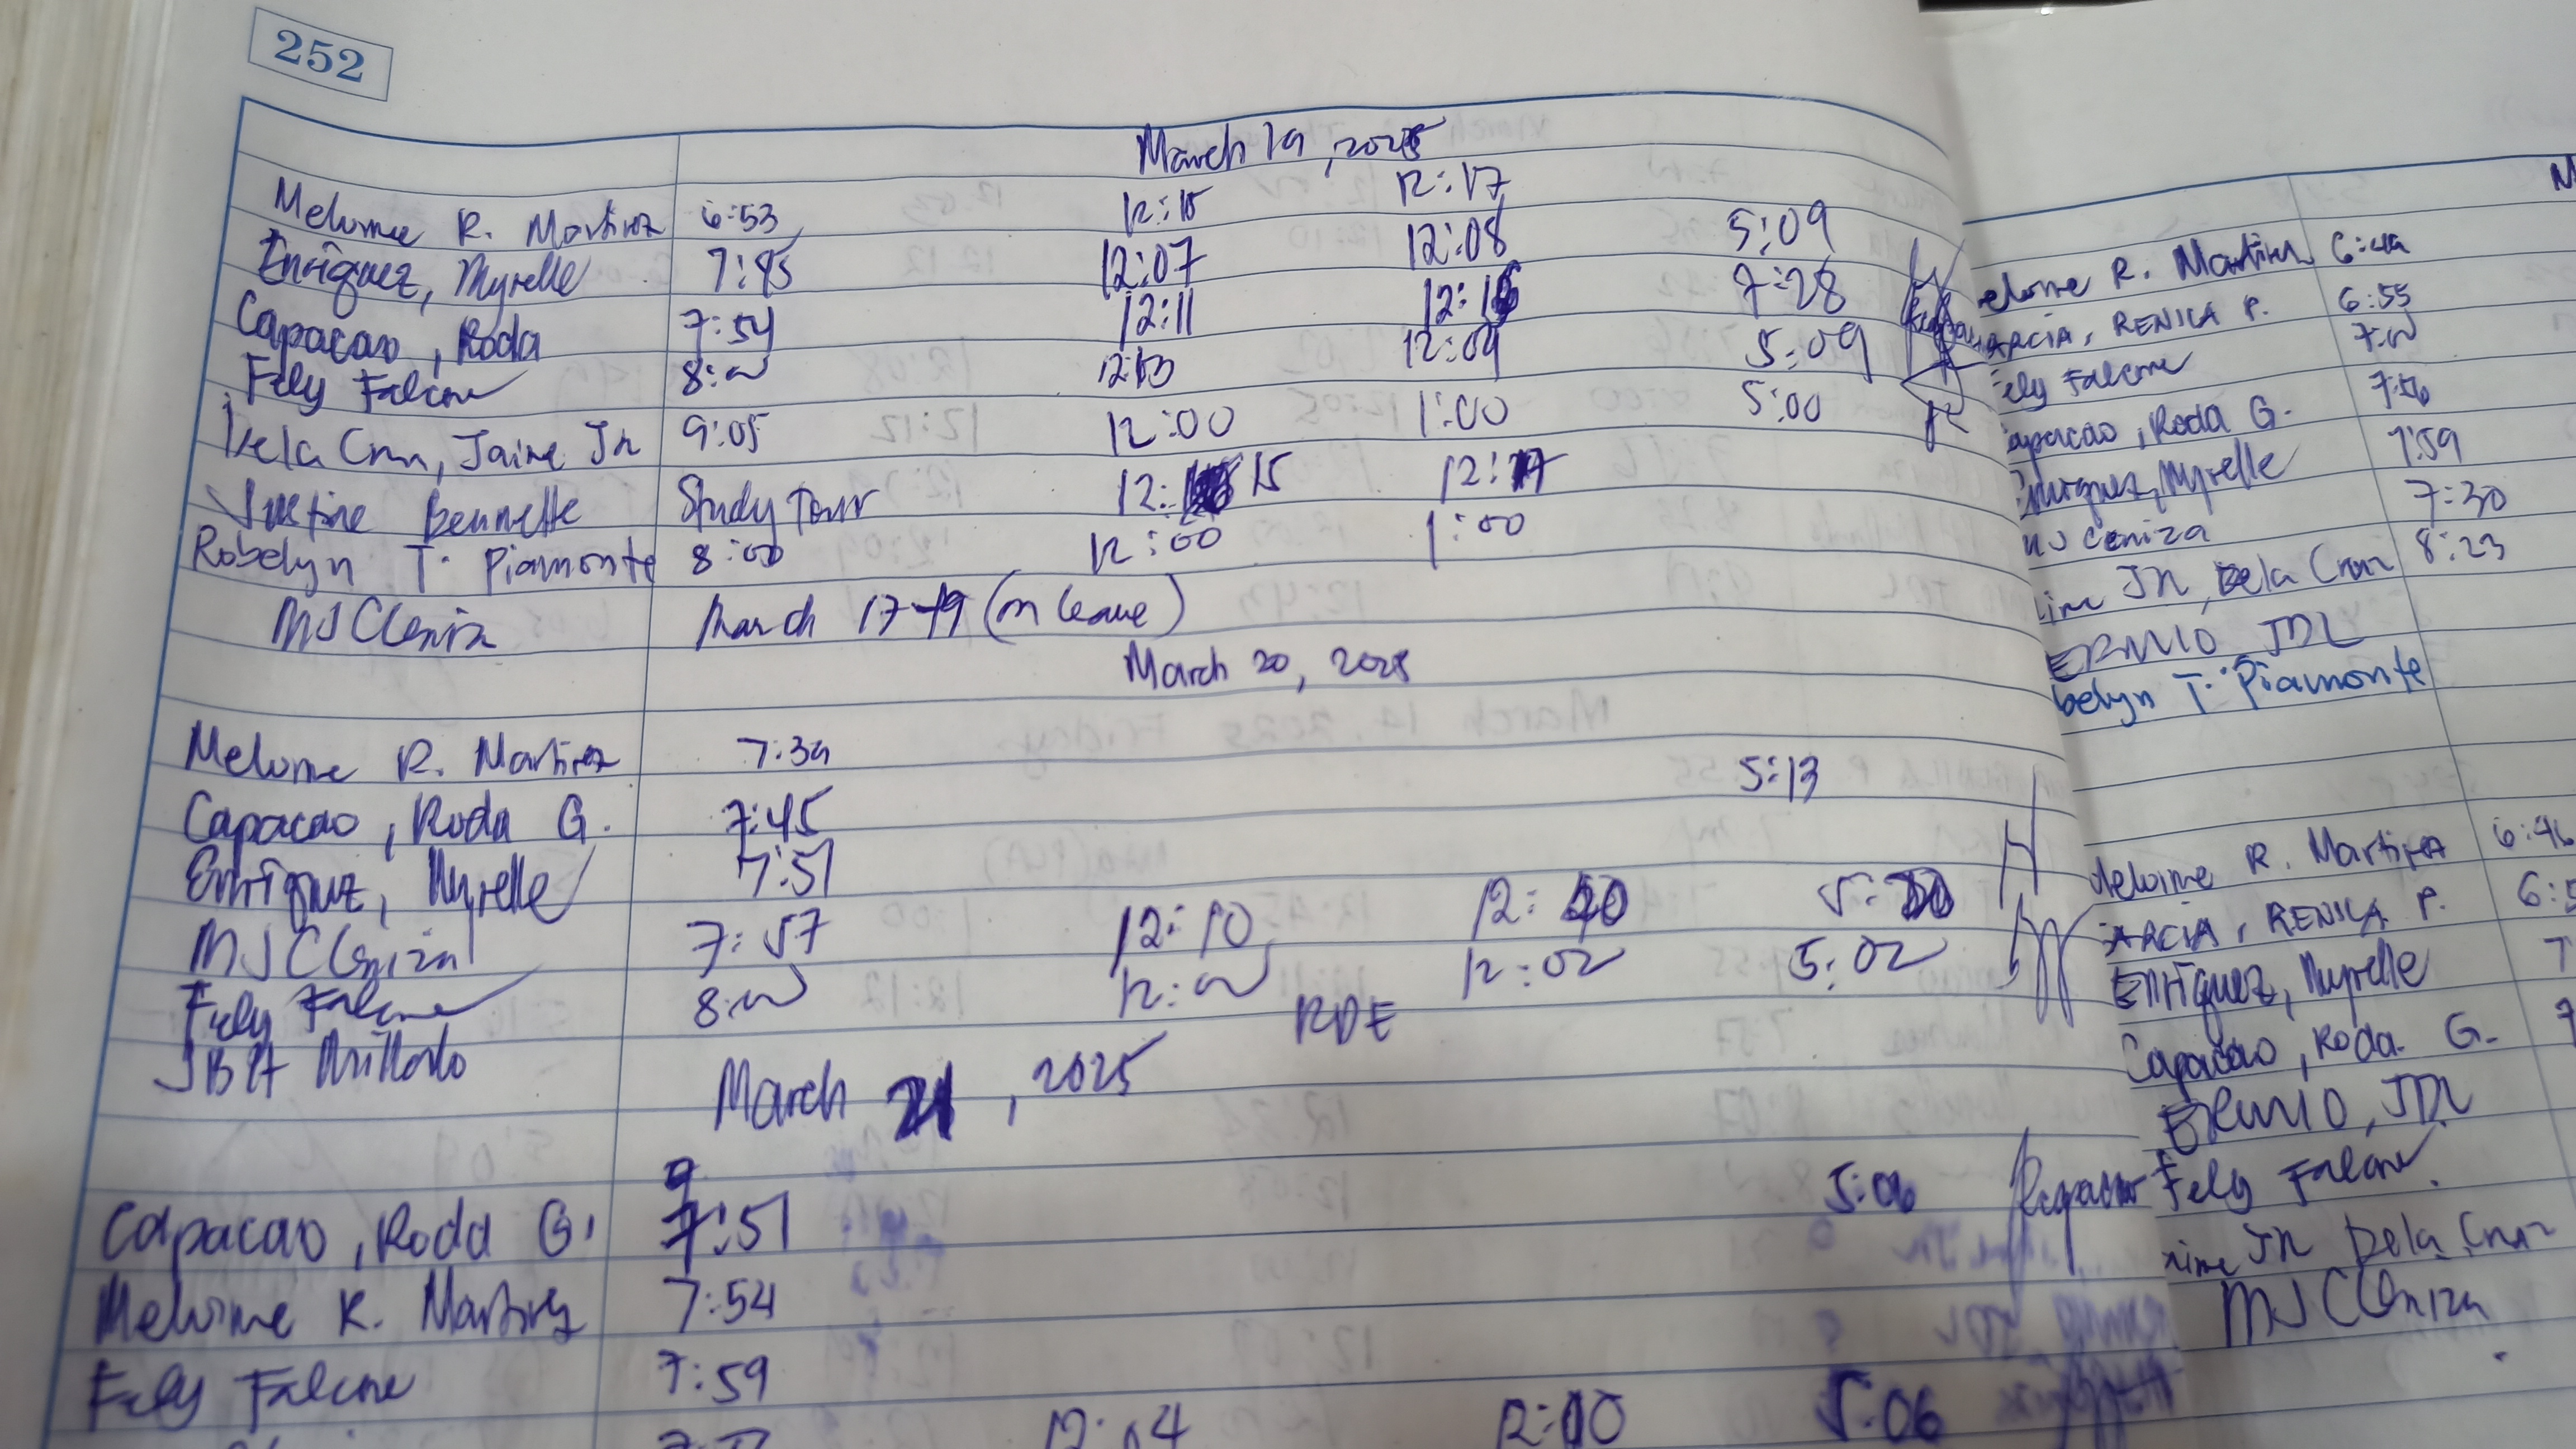 252
March 19, 2025
Melvime R. Martirez 6:53 12:15 12:17
Enriquez, Myrelle 7:45 12:07 12:08 5:09
Capacao, Roda 7:54 12:11 12:16 7:28
Fely Falcone 8:00 12:03 12:04 5:09
Dela Cruz, Jaime Jr 9:05 12:00 1:00 5:00
Justine Bennette Study Tour 12:15 12:17
Robelyn T. Piamonte 8:00 12:00 1:00
MJC Ceniza March 17-19 (on leave)
March 20, 2025
Melvime R. Martirez 7:39
Capacao, Roda G. 7:45 5:13
Enriquez, Myrelle 7:51
MJC Ceniza 7:57 12:10 12:20 5:20
Fely Falcone 8:00 12:00 12:02 5:02
RDE
March 21, 2025
Capacao, Roda G. 7:51 5:06
Melvime R. Martirez 7:54
Fely Falcone 7:59
12:04 12:10 5:06
elvime R. Martirez 6:49
ARCIA, RENILA P. 6:55
ely Falcone 7:00
apacao, Roda G. 7:56
Enriquez, Myrelle 7:59
MJ Ceniza 7:30
ime Jr, Dela Cruz 8:23
ERMIO JDL
belyn T. Piamonte
Melvime R. Martirez 6:46
ARCIA, RENILA P. 6:5
Enriquez, Myrelle 7
Capacao, Roda G. 7
ERMIO, JDL
Fely Falcone
aime Jr Dela Cruz
MJC Ceniza